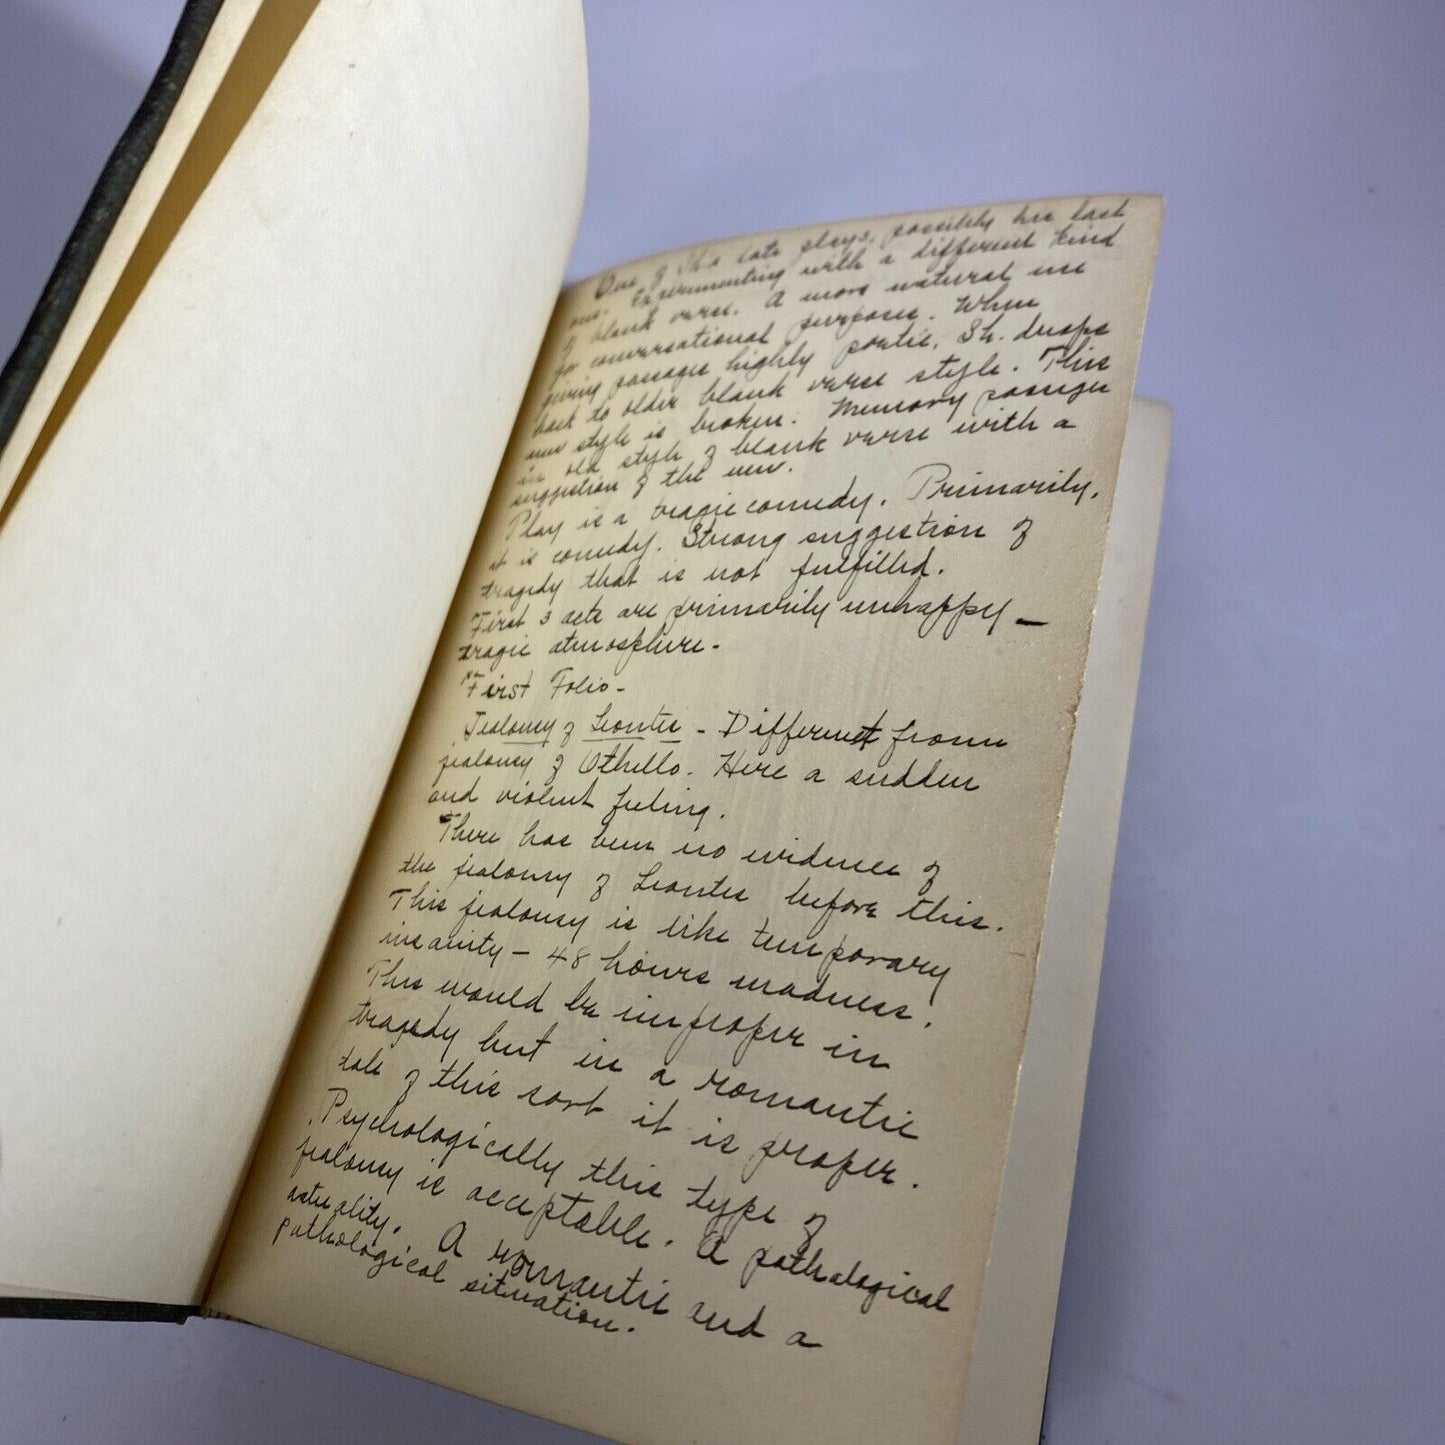 One of Sh's late plays, possibly his last
one. Experimenting with a different kind
of blank verse. A more natural use
for conversational purpose. When
giving passages highly poetic, Sh. drops
back to older blank verse style. This
new style is broken. Memory passages
in old style of blank verse with a
suggestion of the new.
Play is a tragic comedy. Primarily,
it is comedy. Strong suggestion of
tragedy that is not fulfilled.
First 3 acts are primarily unhappy —
tragic atmosphere.
First Folio -
Jealousy of Leontes - Different from
jealousy of Othello. Here a sudden
and violent feeling.
There has been no evidence of
the jealousy of Leontes before this.
This jealousy is like temporary
insanity - 48 hours madness.
This would be improper in
tragedy but in a romantic
tale of this sort it is proper.
Psychologically this type of
jealousy is acceptable. A pathological
actuality. A romantic and a
pathological situation.